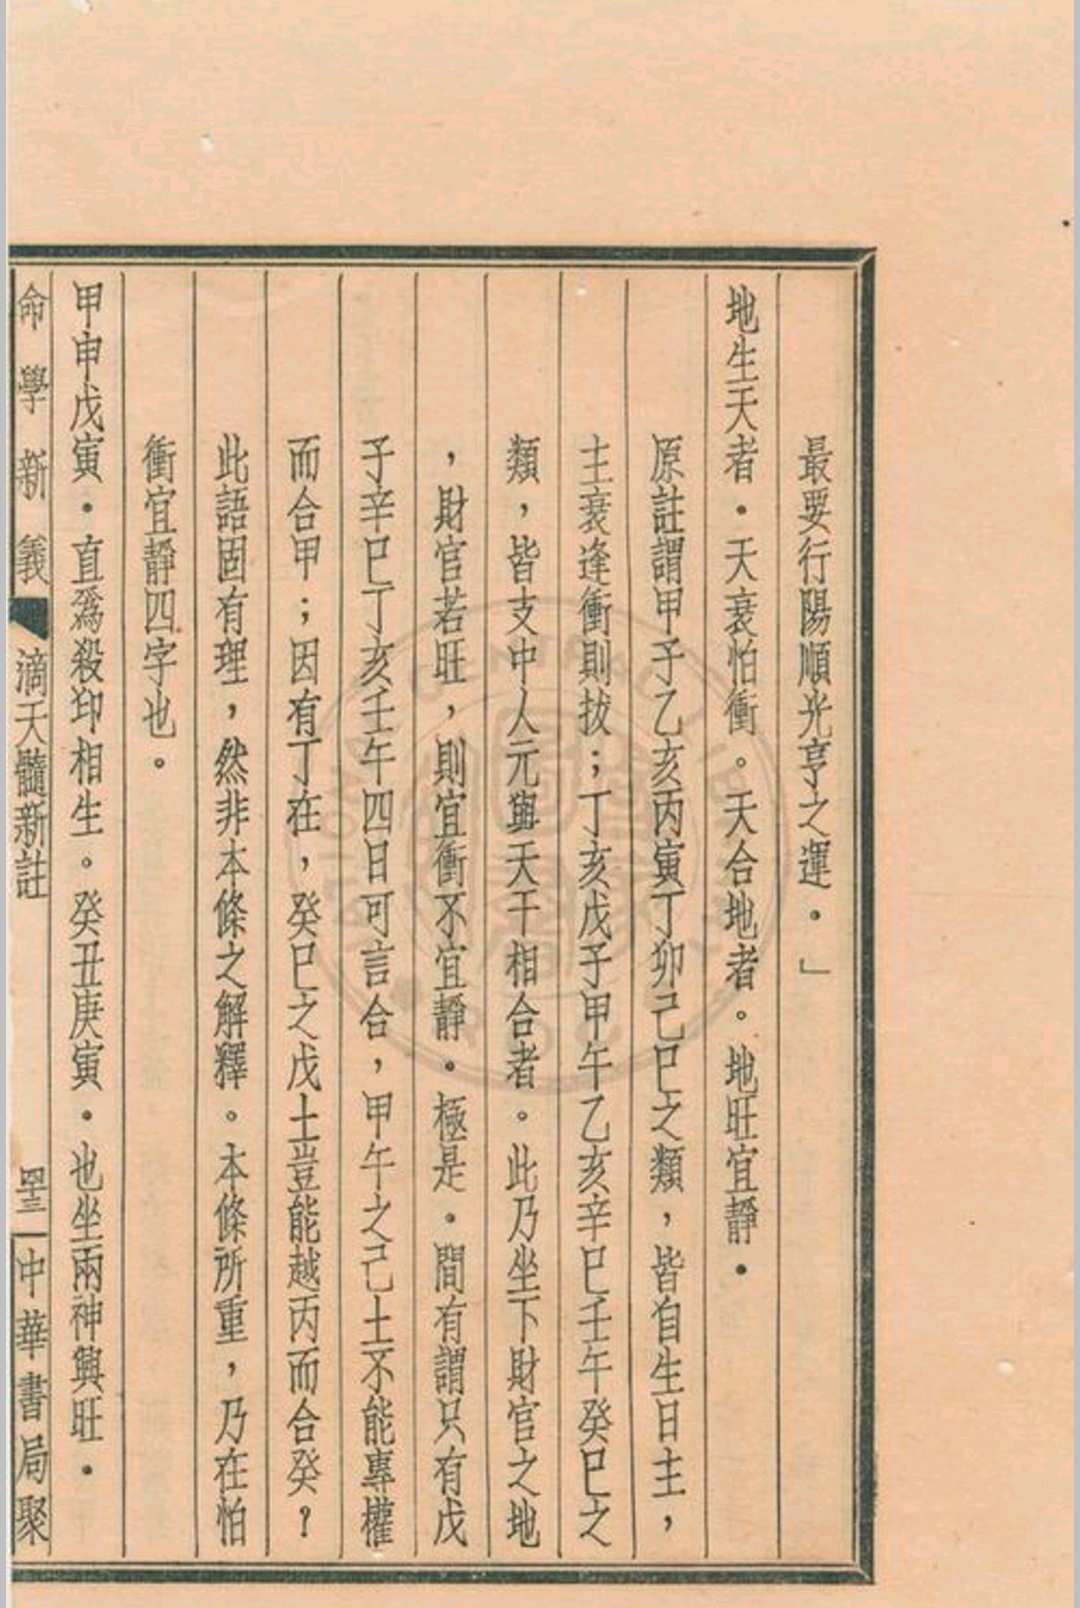 最要行陽順光亨之運．」
地生天者．天衰怕衝。天合地者。地旺宜靜．
原註謂甲子乙亥丙寅丁卯己巳之類，皆自生日主，
主衰逢衝則拔；丁亥戊子甲午乙亥辛巳壬午癸巳之
類，皆支中人元與天干相合者。此乃坐下財官之地
，財官若旺，則宜衝不宜靜．極是．間有謂只有戊
子辛巳丁亥壬午四日可言合，甲午之己土不能專權
而合甲；因有丁在，癸巳之戊土豈能越丙而合癸？
此語固有理，然非本條之解釋。本條所重，乃在怕
衝宜靜四字也。
甲申戊寅．直為殺印相生。癸丑庚寅．也坐兩神興旺．
命學新義 滴天髓新註 四三 中華書局聚